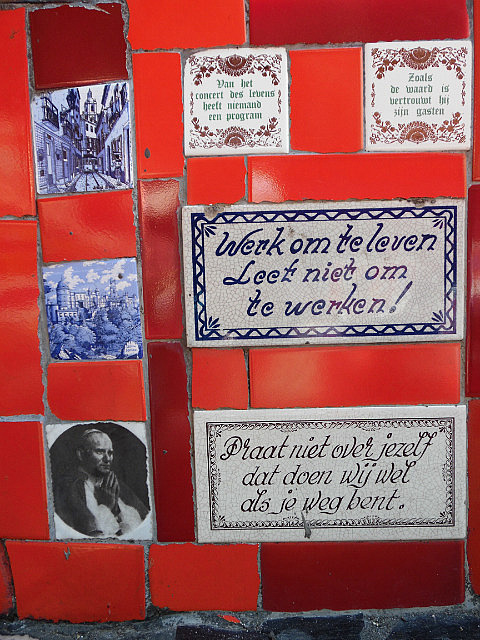 Van het
concert des levens
heeft niemand
een program
Zoals
de waard is
vertrouwt hij
zijn gasten
Werk om te leven
Leef niet om
te werken!
Praat niet over jezelf
dat doen wij wel
als je weg bent.